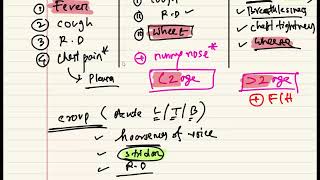 ① Fever
② cough
③ R.D
④ chest pain*
→ Pleura
R.D ✓
Wheez
⊕ runny nose*
<2age
Breathlessness
✓ chest tightness
✓ wheeze
>2age
⊕ F/H
croup ( Acute L / T / B )
✓ hoarseness of voice
✓ stridor
✓ R.D